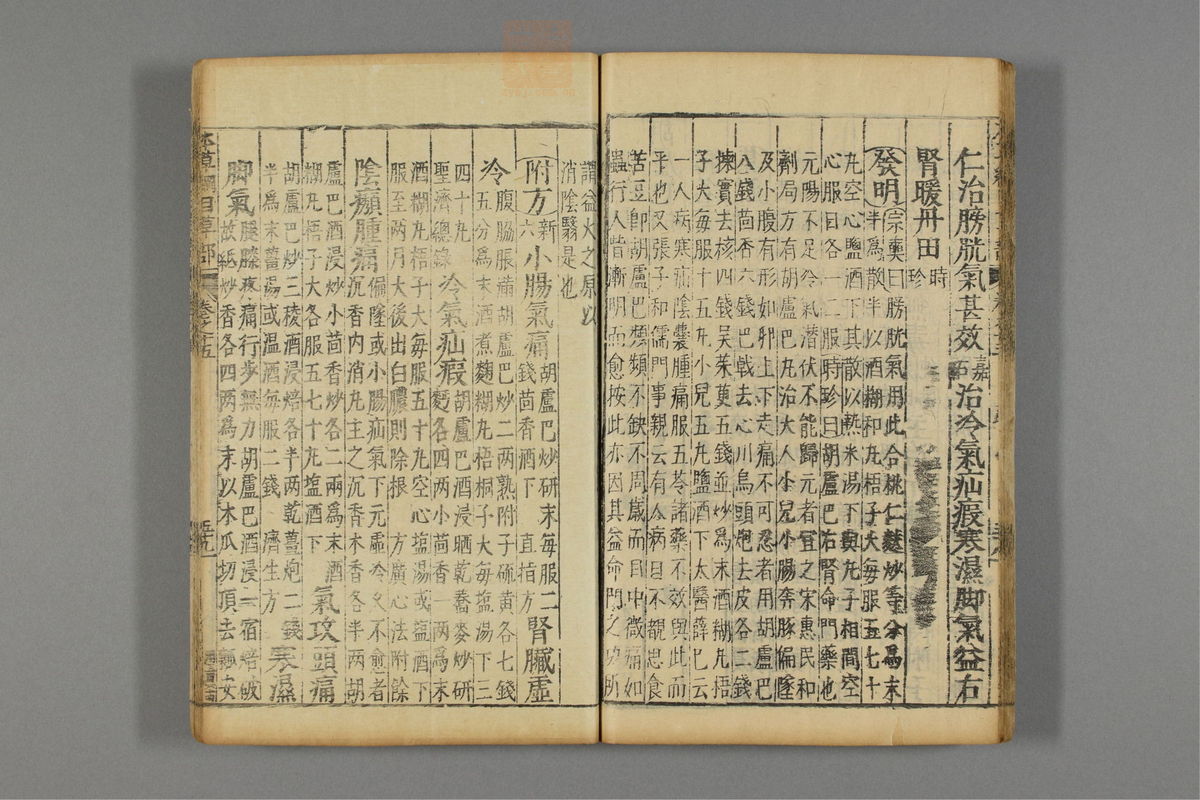 仁治膀胱氣甚效嘉祐治冷氣疝瘕寒濕脚氣益右
腎暖丹田時珍
發明宗奭曰膀胱氣用此合桃仁麩炒等分爲末
半爲散半以酒糊和丸梧子大每服五七十
丸空心鹽酒下其散以熱米湯下與丸子相間空
心服日各一二服時珍曰胡盧巴右腎命門藥也
元陽不足冷氣潛伏不能歸元者宜之宋惠民和
劑局方有胡盧巴丸治大人小兒小腸奔豚偏墜
及小腹有形如卵上下走痛不可忍者用胡盧巴
八錢茴香六錢巴戟去心川烏頭炮去皮各二錢
揀實去核四錢吳茱萸五錢並炒爲末酒糊丸梧
子大每服十五丸小兒五丸鹽酒下太醫薛已云
一人病寒疝陰囊腫痛服五苓諸藥不效與此而
平也又張子和儒門事親云有人病目不覩思食
苦豆即胡盧巴頻頻不缺不周歲而目中微痛如
蟲行入眥漸明而愈按此亦因其益命門之功所
謂益火之原以
消陰翳是也
附方新六小腸氣痛胡盧巴炒研末每服二
錢茴香酒下 直指方腎臟虛
冷腹脇脹滿胡盧巴炒二兩熟附子硫黄各七錢
五分爲末酒煮麹糊丸梧桐子大每塩湯下三
四十丸
聖濟總錄冷氣疝瘕胡盧巴酒浸晒乾蕎麥炒研
麪各四兩小茴香一兩爲末
酒糊丸梧子大每服五十丸空心塩湯或塩酒下
服至两月大後出白膿則除根 方廣心法附餘
陰㿗腫痛偏墜或小腸疝氣下元虛冷久不愈者
沉香内消丸主之沉香木香各半两胡
盧巴酒浸炒小茴香炒各二兩爲末酒
糊丸梧子大各服五七十丸塩酒下氣攻頭痛
胡盧巴炒三稜酒浸焙各半两乾薑炮二錢
半爲末薑湯或温酒每服二錢 濟生方寒濕
脚氣腿膝疼痛行步無力胡盧巴酒浸一宿焙破
故紙炒香各四两爲末以木瓜切頂去瓤安
本草綱目草部 卷之十五 五九